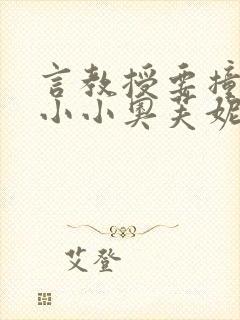 言教授要撞
小小奥芙妮
艾登